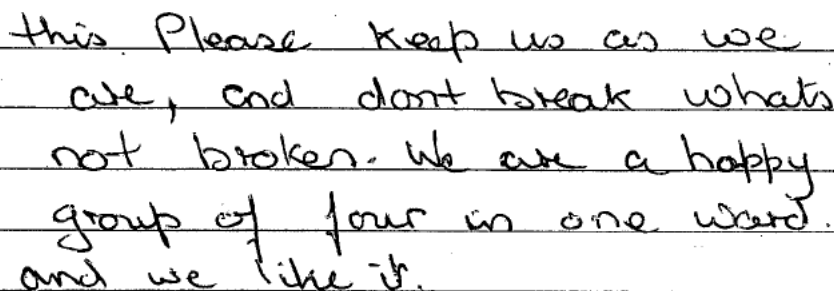 this Please keep us as we
are, and dont break whats
not broken. We are a happy
group of four in one ward.
and we like it.